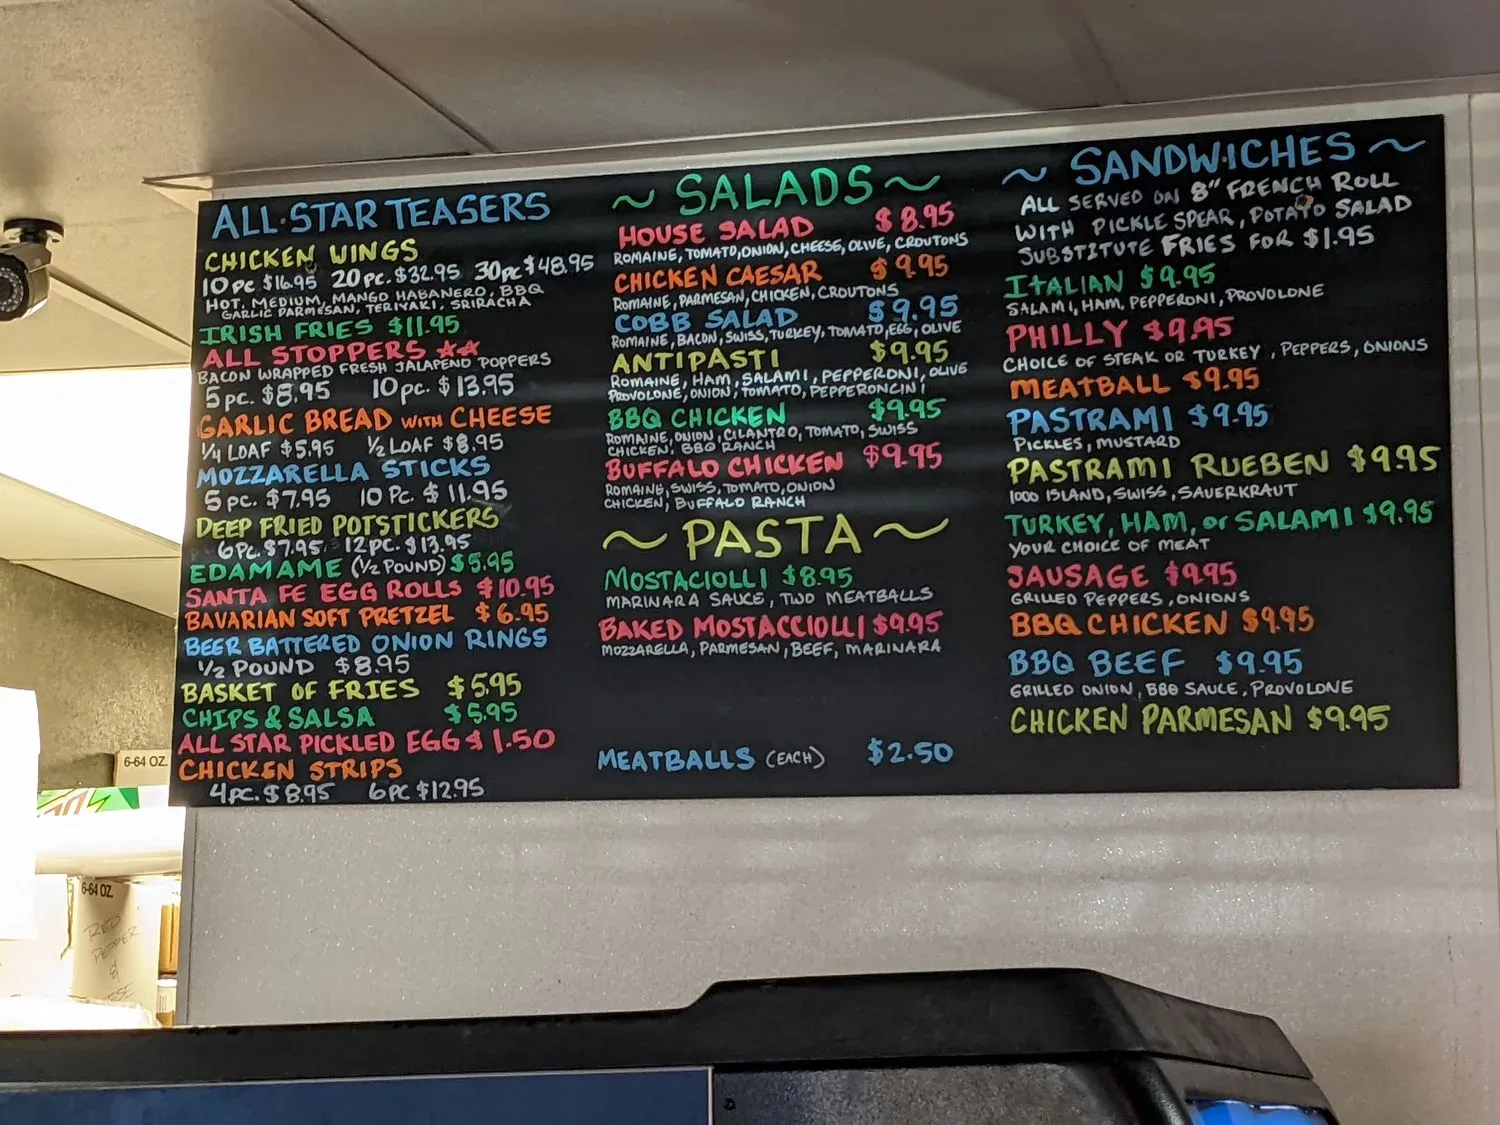 ALL·STAR TEASERS
CHICKEN WINGS
10 pc $16.95 20 pc. $32.95 30 pc $48.95
HOT, MEDIUM, MANGO HABANERO, BBQ
GARLIC PARMESAN, TERIYAKI, SRIRACHA
IRISH FRIES $11.95
ALL STOPPERS ★★
BACON WRAPPED FRESH JALAPENO POPPERS
5 pc. $8.95 10 pc. $13.95
GARLIC BREAD WITH CHEESE
1/4 LOAF $5.95 1/2 LOAF $8.95
MOZZARELLA STICKS
5 pc. $7.95 10 Pc. $11.95
DEEP FRIED POTSTICKERS
6 Pc. $7.95 12 pc. $13.95
EDAMAME (1/2 POUND) $5.95
SANTA FE EGG ROLLS $10.95
BAVARIAN SOFT PRETZEL $6.95
BEER BATTERED ONION RINGS
1/2 POUND $8.95
BASKET OF FRIES $5.95
CHIPS & SALSA $5.95
ALL STAR PICKLED EGG $1.50
CHICKEN STRIPS
4 pc. $8.95 6 pc $12.95
~ SALADS ~
HOUSE SALAD $8.95
ROMAINE, TOMATO, ONION, CHEESE, OLIVE, CROUTONS
CHICKEN CAESAR $9.95
ROMAINE, PARMESAN, CHICKEN, CROUTONS
COBB SALAD $9.95
ROMAINE, BACON, SWISS, TURKEY, TOMATO, EGG, OLIVE
ANTIPASTI $9.95
ROMAINE, HAM, SALAMI, PEPPERONI, OLIVE
PROVOLONE, ONION, TOMATO, PEPPERONCINI
BBQ CHICKEN $9.95
ROMAINE, ONION, CILANTRO, TOMATO, SWISS
CHICKEN, BBQ RANCH
BUFFALO CHICKEN $9.95
ROMAINE, SWISS, TOMATO, ONION
CHICKEN, BUFFALO RANCH
~ PASTA ~
MOSTACIOLLI $8.95
MARINARA SAUCE, TWO MEATBALLS
BAKED MOSTACCIOLLI $9.95
MOZZARELLA, PARMESAN, BEEF, MARINARA
MEATBALLS (EACH) $2.50
~ SANDWICHES ~
ALL SERVED ON 8" FRENCH ROLL
WITH PICKLE SPEAR, POTATO SALAD
SUBSTITUTE FRIES FOR $1.95
ITALIAN $9.95
SALAMI, HAM, PEPPERONI, PROVOLONE
PHILLY $9.95
CHOICE OF STEAK OR TURKEY, PEPPERS, ONIONS
MEATBALL $9.95
PASTRAMI $9.95
PICKLES, MUSTARD
PASTRAMI RUEBEN $9.95
1000 ISLAND, SWISS, SAUERKRAUT
TURKEY, HAM, or SALAMI $9.95
YOUR CHOICE OF MEAT
SAUSAGE $9.95
GRILLED PEPPERS, ONIONS
BBQ CHICKEN $9.95
BBQ BEEF $9.95
GRILLED ONION, BBQ SAUCE, PROVOLONE
CHICKEN PARMESAN $9.95
6-64 OZ.
6-64 OZ.
RED
PEPPER
&